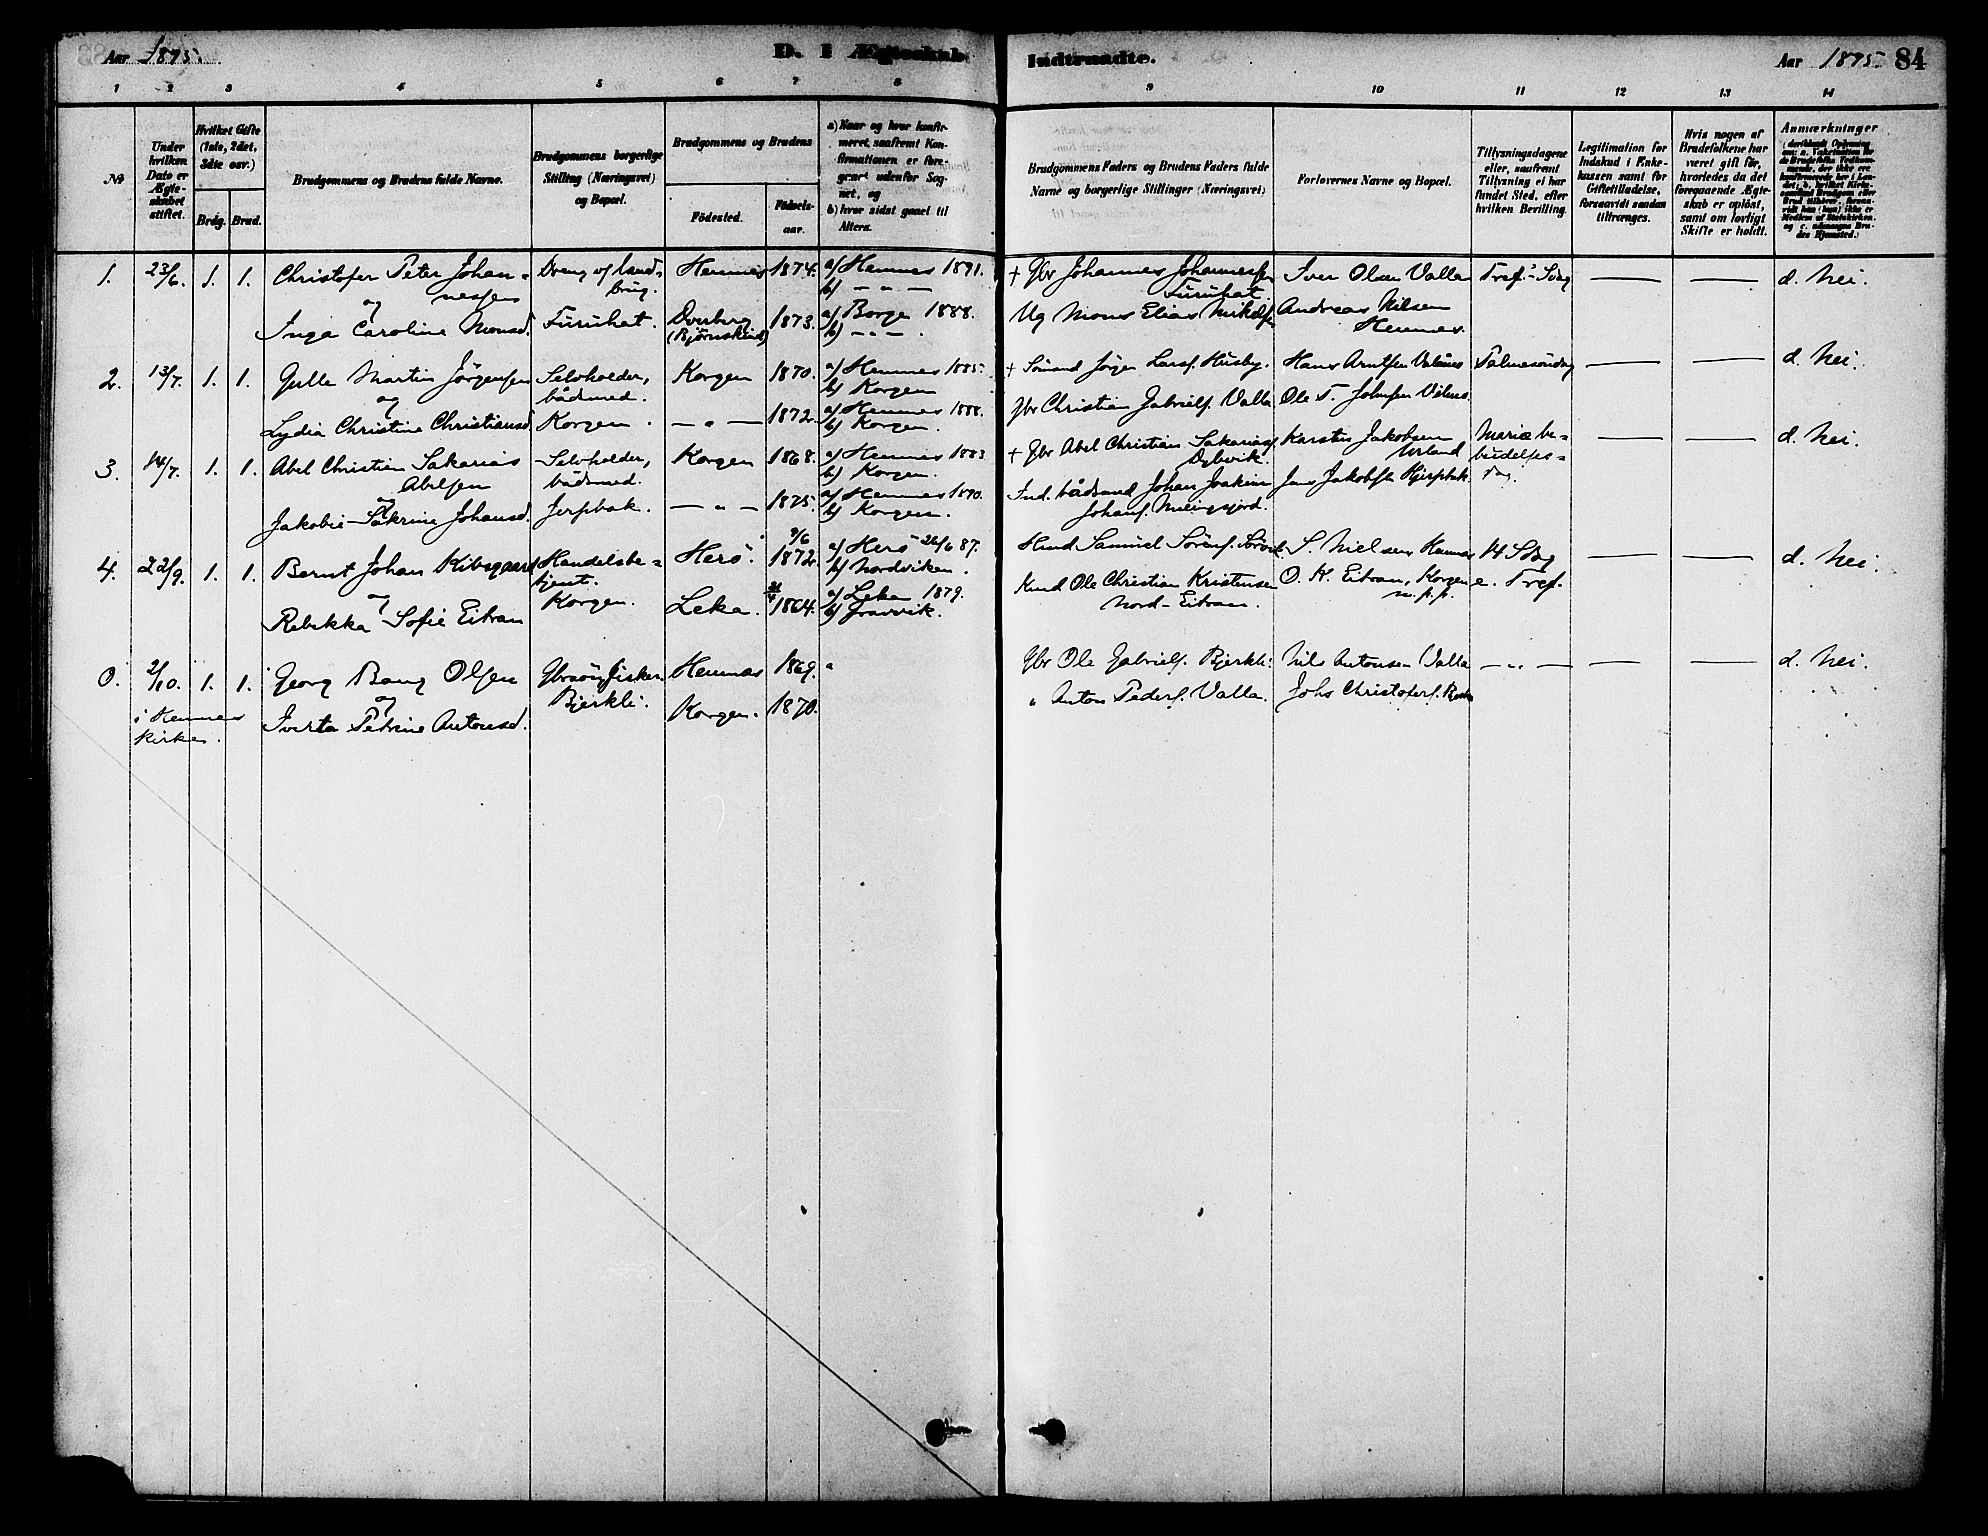 Aar 1895.
D. I Ægteskab
Indtraadte.
Aar 1895. 84
1 2 3 4 5 6 7 8 9 10 11 12 13 14
№
Under hvilken Dato er Ægteskabet stiftet.
Hvilket Gifte (1ste, 2det, 3die osv.)
Brdg. Brud.
Brudgommens og Brudens fulde Navne.
Brudgommens borgerlige Stilling (Næringsvei) og Bopæl.
Brudgommens og Brudens
Födested.
Födselsaar.
a) Naar og hvor konfirmeret, saafremt Konfirmationen er foregaaet udenfor Sognet, og
b) hvor sidst gaaet til Alters.
Brudgommens Faders og Brudens Faders fulde Navne og borgerlige Stillinger (Næringsvei)
Forlovernes Navne og Bopæl.
Tillysningsdagene eller, saafremt Tillysning ei har fundet Sted, efter hvilken Bevilling.
Legitimation for Indskud i Enkekassen samt for Giftetilladelse, forsaavidt saadan tiltrænges.
Hvis nogen af Brudefolkene har været gift før, hvorledes da det foregaaende Ægteskab er oplöst, samt om lovligt Skifte er holdt.
Anmærkninger
1. 23/6. 1. 1. Christofer Peter Johannessen
og
Inga Caroline Monsd.
Dreng v/ landbrug.
Furuhat.
Hemnes 1874. a) Hemnes 1891.
b) — " —
Dverberg (Bjørnskind) 1873. a) Borge 1888.
b) — " —
+ Gbr Johannes Johannessen Furuhat.
Ug Mons Elias Mikals.
Iver Olsen Valla
Andreas Nilsen Hemnes.
Tref. Sdag
— — d. Nei.
2. 13/7. 1. 1. Gulle Martin Jörgensen
og
Lydia Christine Christiansd.
Selvholder, bådsmed.
Korgen.
Korgen 1870. a) Hemnes 1885.
b) Korgen
— " — 1872. a) Hemnes 1888.
b) Korgen.
+ Sömand Jörgen Larsf. Husby.
Gbr Christian Gabrielf. Valla
Hans Arntsen
Ole T. Johnsen
Palmesöndag
— — d. Nei.
3. 14/7. 1. 1. Abel Christian Sakarias Abelsen
og
Jakobie Sakrine Johansd.
Selvholder, bådsmed.
Jerpbak.
Korgen 1868. a) Hemnes 1883
b) Korgen.
— " — 1875. a) Hemnes 1890.
b) Korgen.
+ Gbr Abel Christian Sakariasf
Ind. bådsmed Johan Joakim Johanf.
Karsten Jakobsen
Jens Jakobsen Hjerpbak
Mariæ bebudelsesdag.
— — d. Nei.
4. 22/9. 1. 1. Bernt Johan Kibsgaard
og
Rebekka Sofie Eitran
Handelsbetjent.
Korgen.
Herö. 9/6 1872. a) Herö 26/6 87.
b) Nordviken.
Leka. 1864. a) Leka 1879.
b) Gravvik.
Hmd Samuel Sörenf.
Kmd Ole Christian Kristensen Nord-Eitran.
S. Nielsen Hemnes
O. K. Eitran, Korgen m.p.p.
14 Sdag e. Tref.
— — d. Nei.
0. 2/10. 1. 1. Georg Bang Olsen
i Hemnes Kirke.
og
Iverta Petrine Antonsd.
Gbrsön, fisker
Bjerkli.
Hemnes 1869. "
Korgen. 1870.
Gbr Ole Gabrielf. Bjerkli.
" Anton Pederf. Valla.
Nils Antonsen Valla
Johs Christoferf.
— " — — — d. Nei.